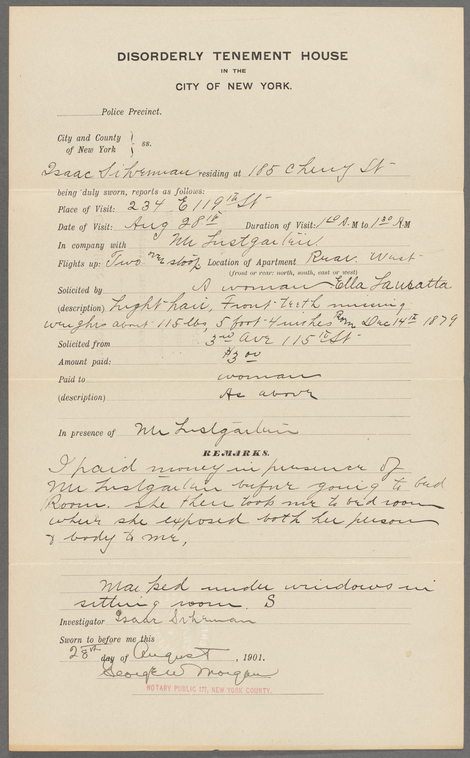 DISORDERLY TENEMENT HOUSE
IN THE
CITY OF NEW YORK.
Police Precinct.
City and County
of New York } ss.
Isaac Silverman residing at 185 Cherry St
being duly sworn, reports as follows:
Place of Visit: 234 E 119th St
Date of Visit: Aug 28th Duration of Visit: 1 A.M to 1 30 A.M
In company with Mr Lustgarten
Flights up: Two over stoop Location of Apartment Rear West
(front or rear: north, south, east or west)
Solicited by A woman Ella Lauratta
(description) Light hair, Front teeth missing
weighs about 115 lbs, 5 foot 4 inches Dec 14th 1879
Solicited from 3rd Ave 115th St
Amount paid: $3.00
Paid to woman
(description) As above
In presence of Mr Lustgarten
REMARKS.
I paid money in presence of
Mr Lustgarten before going to bed
Room. She then took me to bed room
where she exposed both her person
& body to me,
Marked under windows in
sitting room. S
Investigator Isaac Silverman
Sworn to before me this
28th day of August, 1901.
George W Morgan
NOTARY PUBLIC 177, NEW YORK COUNTY.